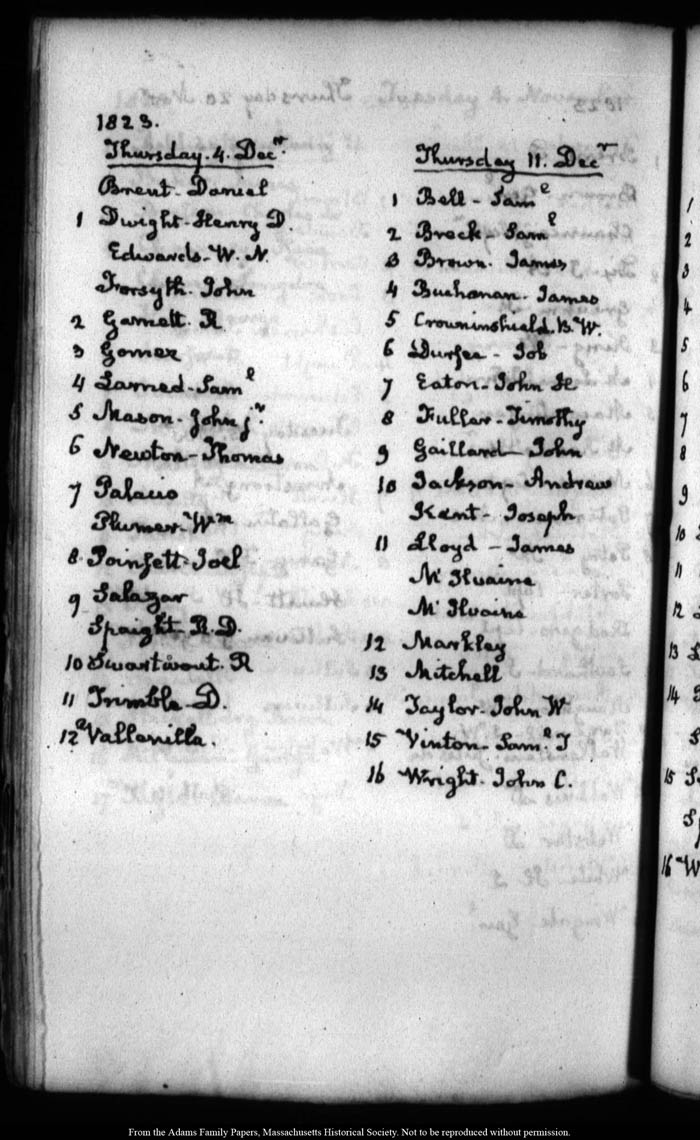 1823.
Thursday. 4. Decr.
Brent- Daniel
1 Dwight- Henry D.
Edwards- W. N.
Forsyth. John
2 Garnett. R
3 Gomez
4 Larned- Saml
5 Mason- John jr.
6 Newton- Thomas
7 Palacio
Plumer- Wm
8. Poinsett- Joel
9 Salazar
Spaight R. D.
10 Swartwout. R
11 Trimble- D.
12 Vallenilla.
Thursday 11. Decr
1 Bell- Saml
2 Breck- Saml
3 Brown. James
4 Buchanan. James
5 Crowninshield. B. W.
6 Durfee- Job
7 Eaton- John H
8 Fuller- Timothy
9 Gaillard- John
10 Jackson- Andrew
Kent- Joseph
11 Lloyd- James
Mc Ilvaine
Mc Ilvaine
12 Markley
13 Mitchell
14 Taylor- John W
15 Vinton- Saml F
16 Wright- John C.
1
2
3
4
5
6
7
8
9
10
11
12
13
14
15
16 W
From the Adams Family Papers, Massachusetts Historical Society. Not to be reproduced without permission.